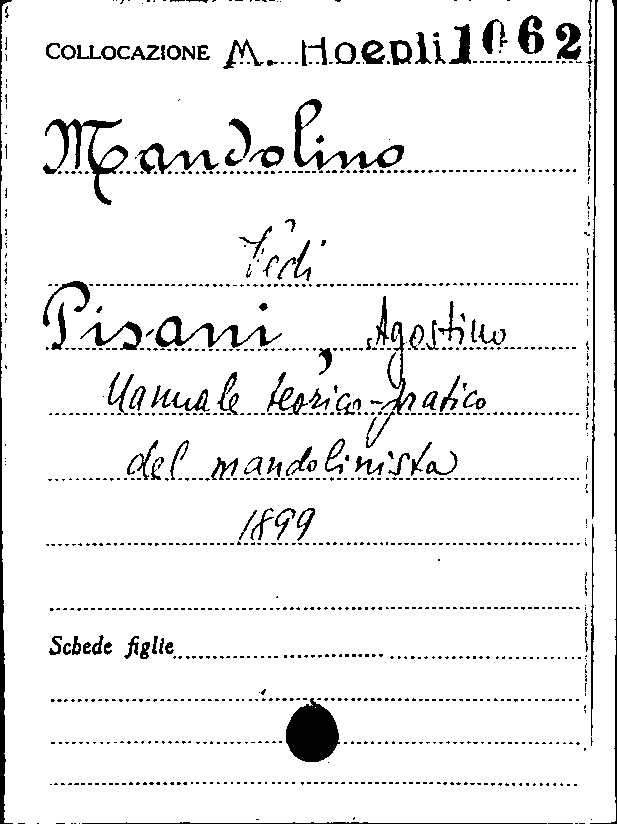 COLLOCAZIONE M. Hoepli 1062
Mandolino
Vedi
Pisani, Agostino
Manuale teorico-pratico
del mandolinista
1899
Schede figlie